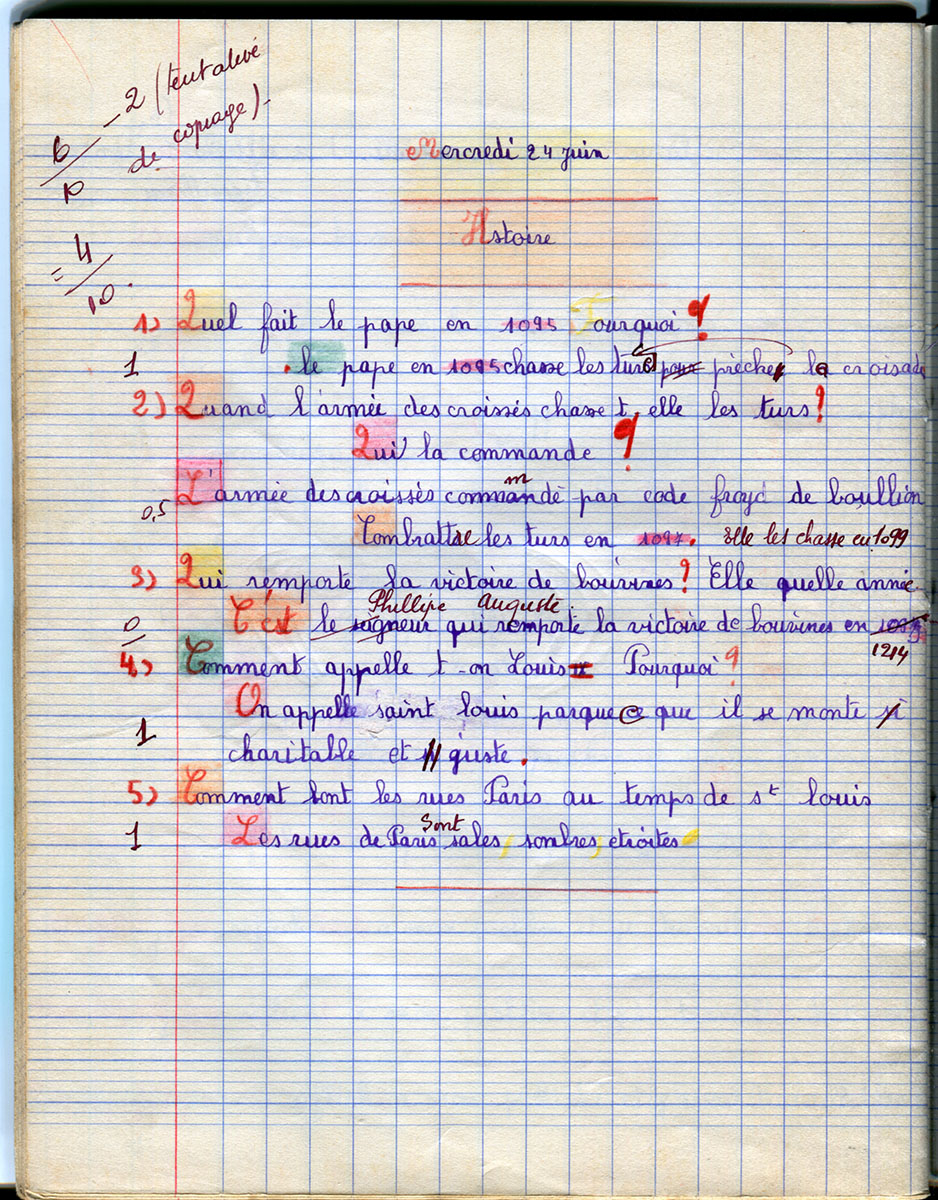 6/10 - 2 (tentative
de copiage).
= 4/10.
Mercredi 24 juin
Histoire
1) Quel fait le pape en 1095 Pourquoi ?
1 . le pape en 1095 chasse les turcs pour prècher la croisade
2) Quand l'armée des croissés chasse t. elle les turs ?
Qui la commande ?
m
0,5 L'armée des croissés commandé par code froyd de boullion
Combrattre les turs en 1097. Elle les chasse en 1099
3) Qui remporte la victoire de bouvines ? Elle quelle année
Phillipe Auguste
0 C'est le seigneur qui remporte la victoire de bouvines en
1214
4) Comment appelle t-on Louis IX Pourquoi ?
On appelle saint louis parque que il se monte si
1 charitable et juste.
5) Comment sont les rues Paris au temps de st louis
sont
1 Les rues de Paris sales, sombres, etroites